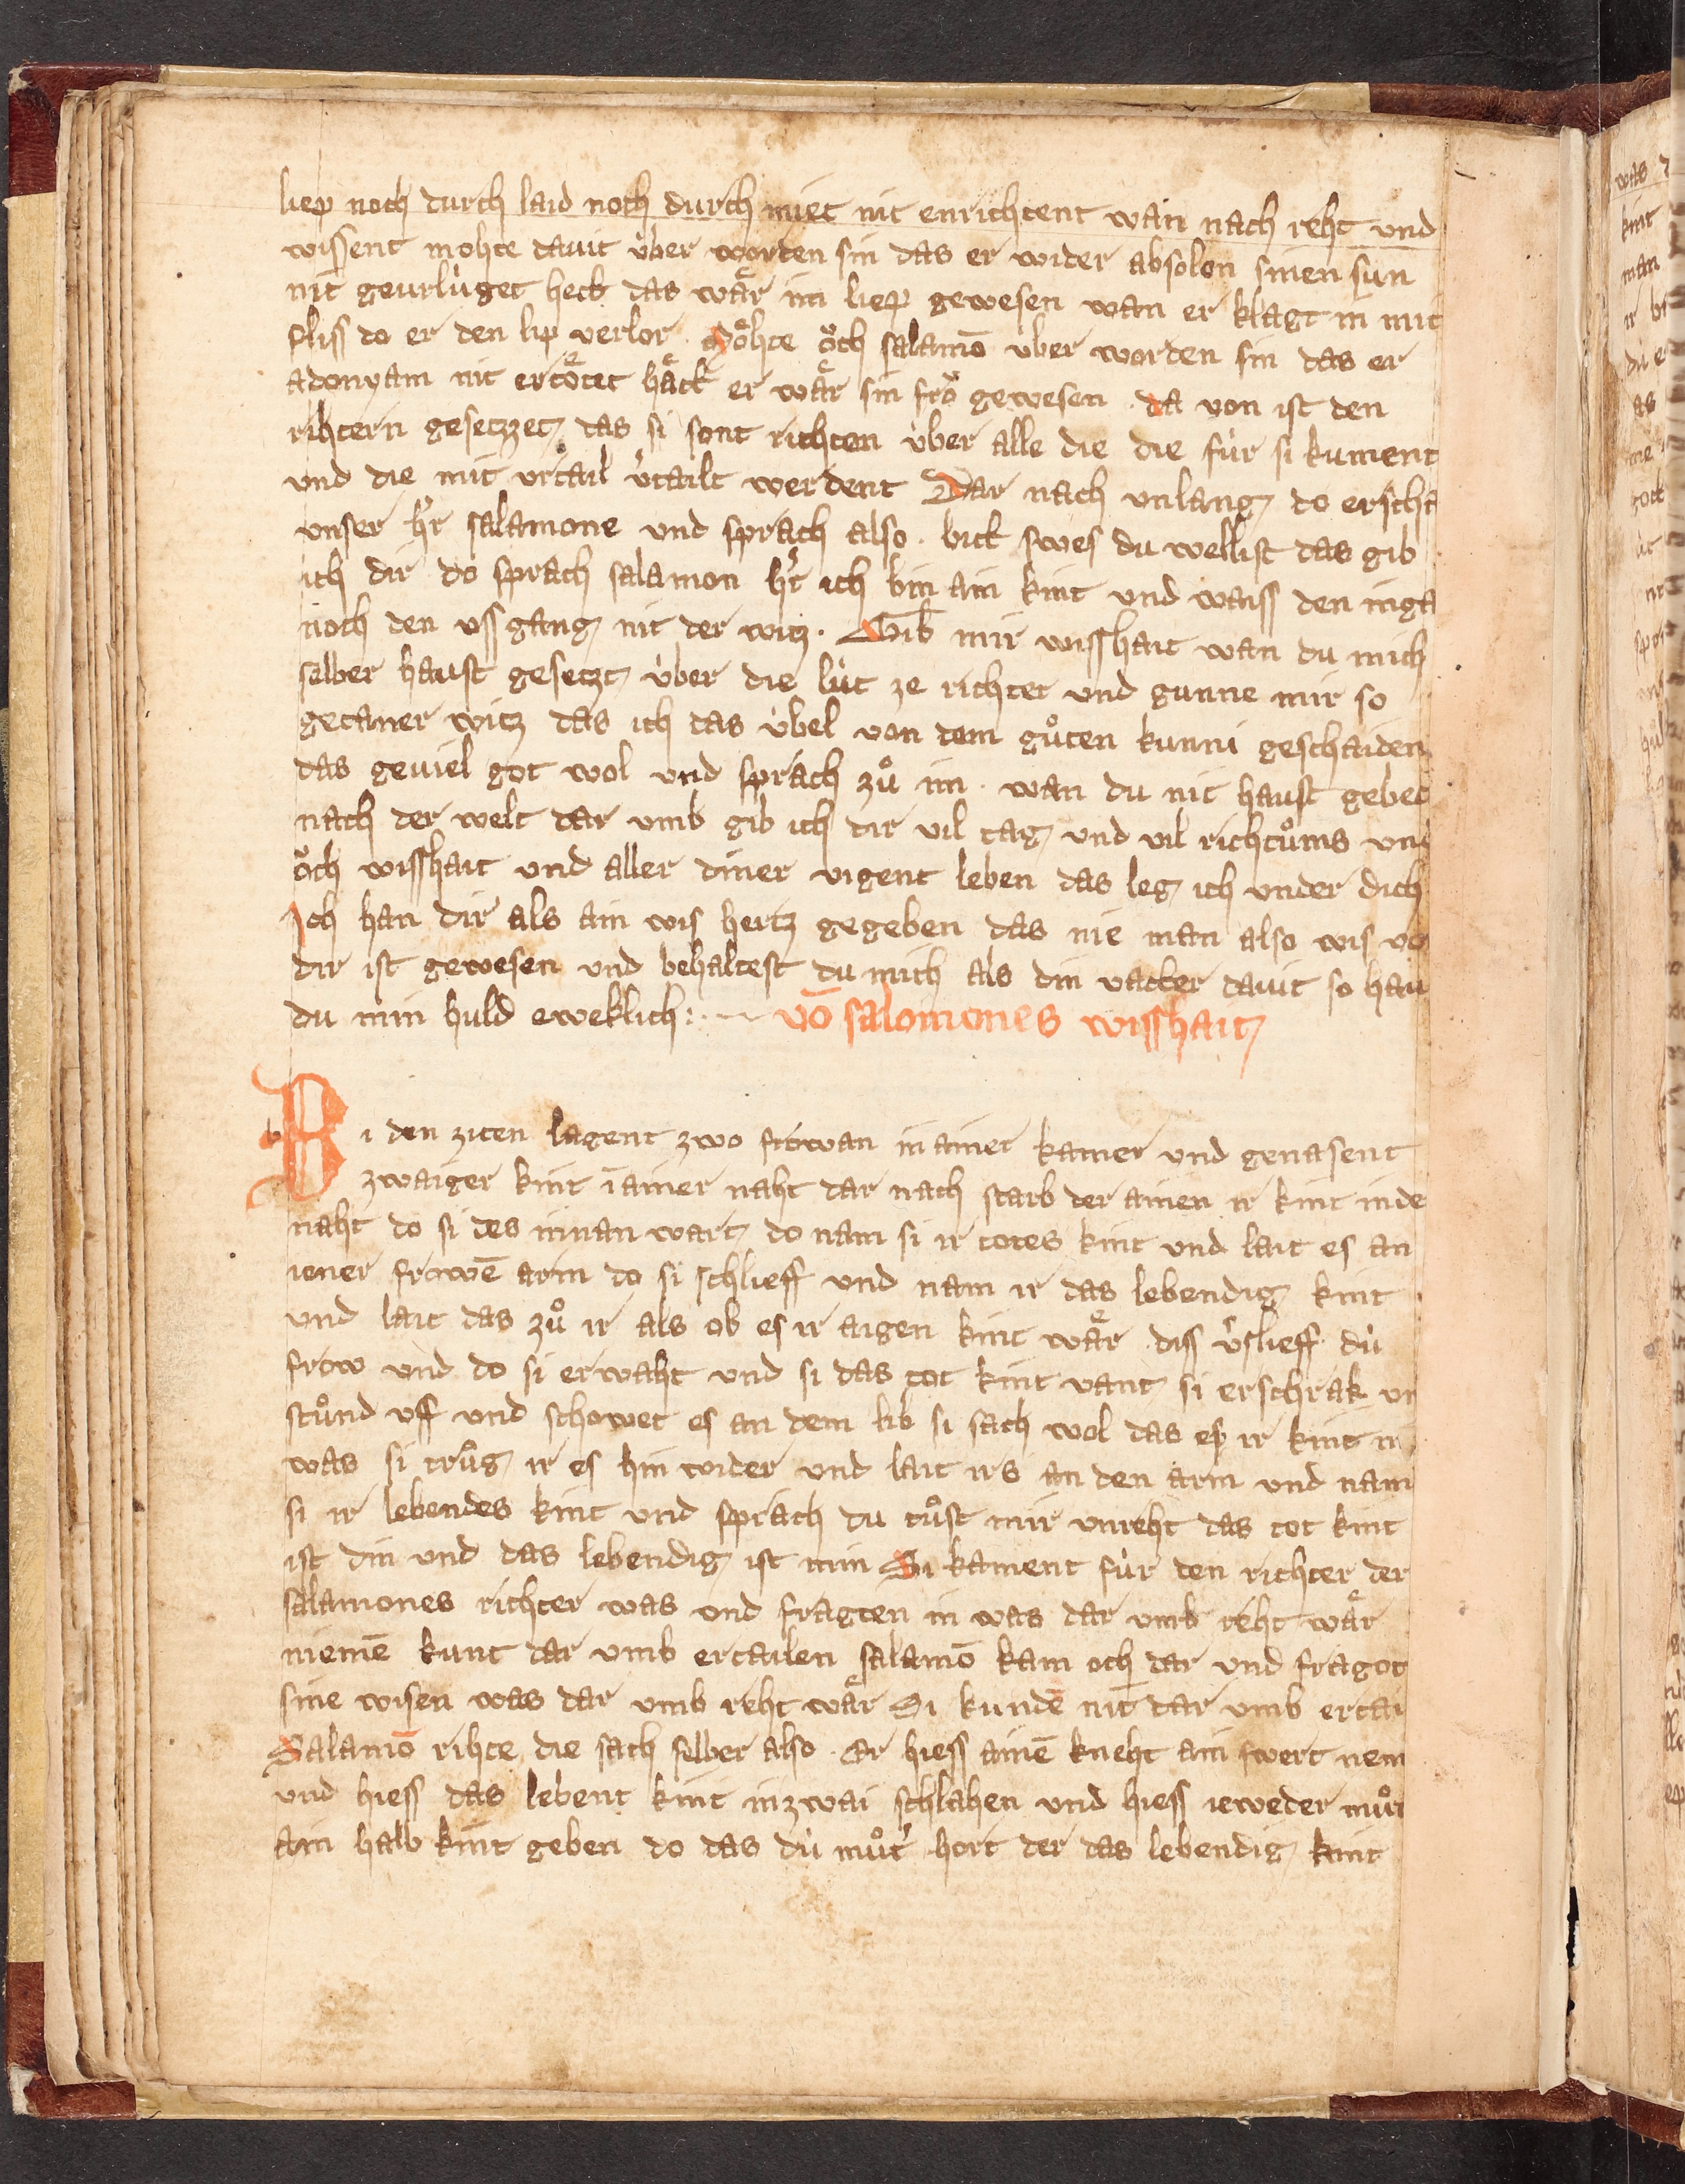 liep noch durch laid noch durch miet nit enrichtent wan nach reht vnd
wissent mohte dauit über worden sin das er wider absolon sinen sun
nit geurlúget hett das waͤr im liep gewesen wan er klagt in mit
fliss do er den lip verlor. Moͤhte oͮch salamō vber worden sin das er
adonyam nit ertoͤtet haͤtt er waͤr sin fro gewesen. da von ist den
rihtern gesetzzet das si sont richten úber alle die die fúr si kument
vnd die mit vrtail v̓tailt werdent Dar nach vnlang do erscha
vnser h̓r salamone vnd sprach also. bitt swes du wellist das gib
ich dir do sprach salamon h̓r ich bin ain kint vnd waiss den inga
noch den vss gang nit der witz. Gib mir wisshait wan du mich
selber haust gesetzt úber die lút ze richter vnd gunne mir so
getaner witz das ich das úbel von dem guͦten kunni geschaiden
das geuiel got wol vnd sprach zuͦ im. wan du nit haust gebet
nach der welt dar vmb gib ich dir vil tag vnd vil richtuͦms vnd
oͮch wisshait vnd aller diner vigent leben das leg ich vnder dich
Ich han dir als ain wis hertz gegeben das nie man also wis vor
dir ist gewesen vnd behaltest du mich als din vatter dauit so hau
du min huld eweklich: vō salomones wisshait
Bi den ziten lagent zwo frowan in ainer kamer vnd genasent
zwaiger kint ī ainer naht dar nach starb der ainen ir kint in de
naht do si des innan wart do nam si ir totes kint vnd lait es an
iener frowē arm do si schlieff vnd nam ir das lebendig kint
vnd lait das zuͦ ir als ob es ir aigen kint waͤr diss v̓slieff dú
frow vnd do si erwaht vnd si das tot kint vant si erschrak vn
stuͦnd vff vnd schowet es an dem lib si sach wol das es ir kint ni
was si truͦg ir es hin wider vnd lait irs an den arm vnd nam
si ir lebendes kint vnd sprach du tuͦst mir vnreht das tot kint
ist din vnd das lebendig ist min Si kament fúr den richter der
salamones richter was vnd fragten in was dar vmb reht waͤr
niemē kunt dar vmb ertailen salamō kam och dar vnd fragot
sine wisen was dar vmb reht waͤr Si kundē nit dar vmb ertai
Salamō rihte die sach selber also. Er hiess ainē kneht ain swert nem
vnd hiess das lebent kint in zwai schlahen vnd hiess ieweder muͦt
ain halb kint geben do das dú muͦt̓ hort der das lebendig kint